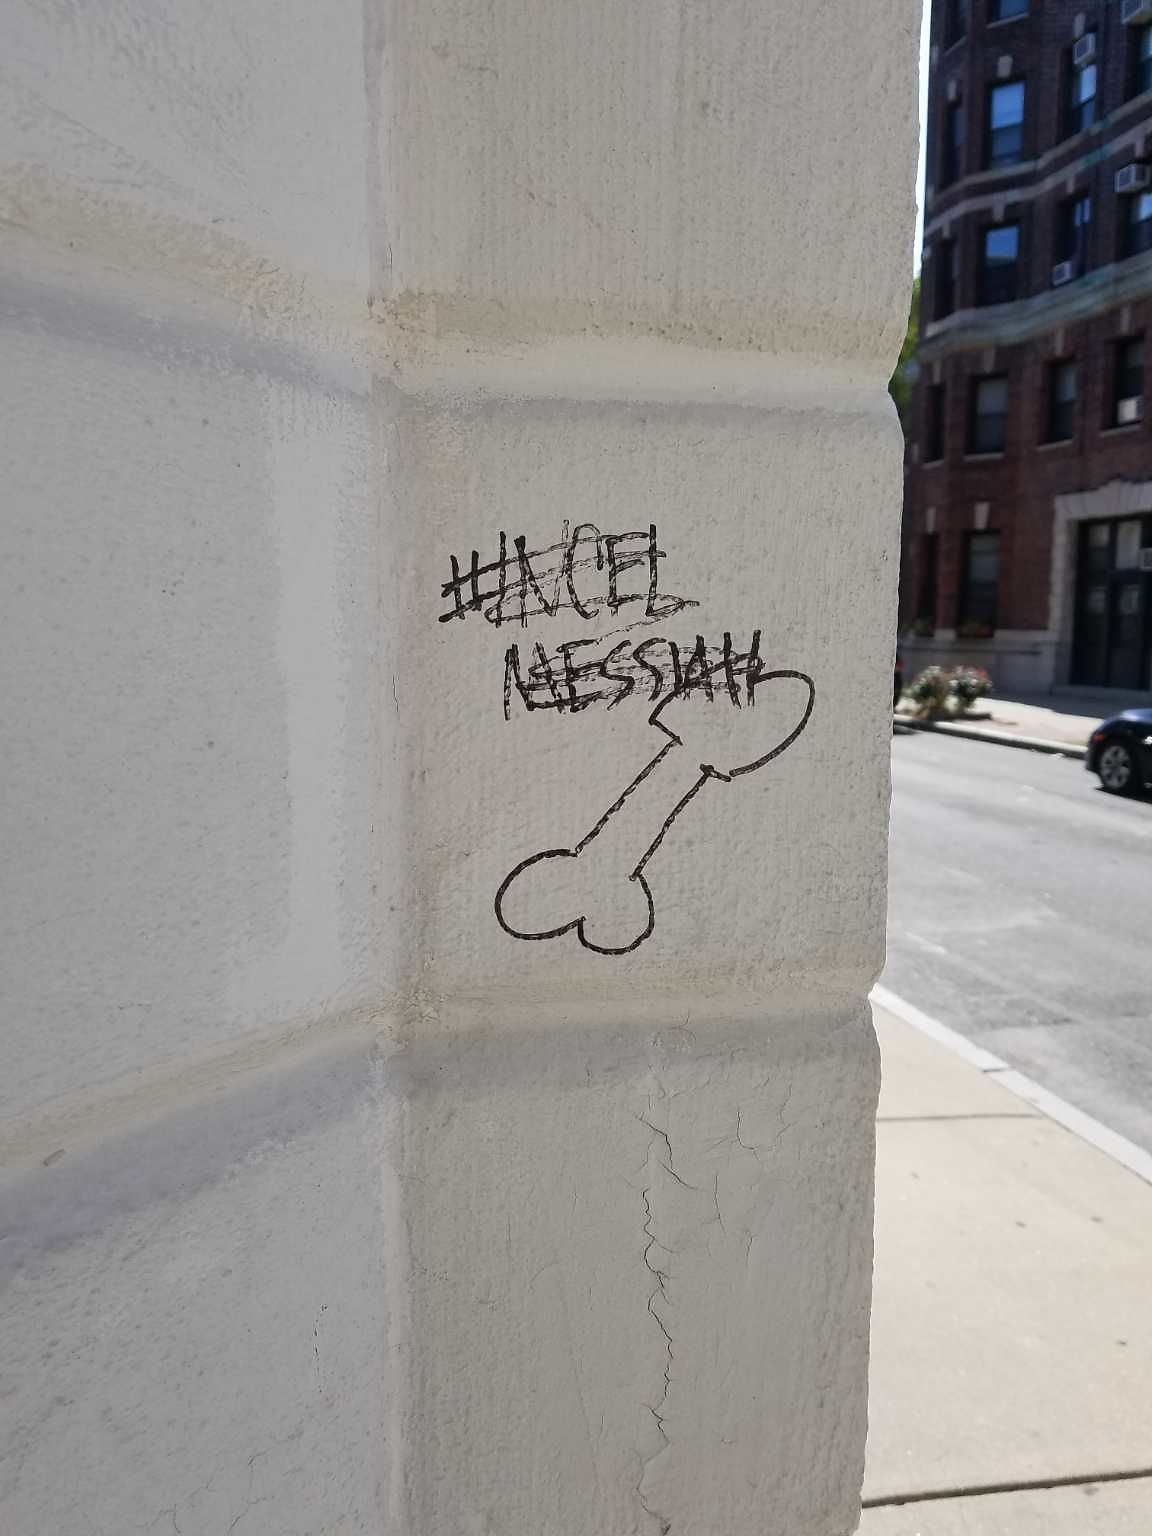 #INCEL
MESSIAH